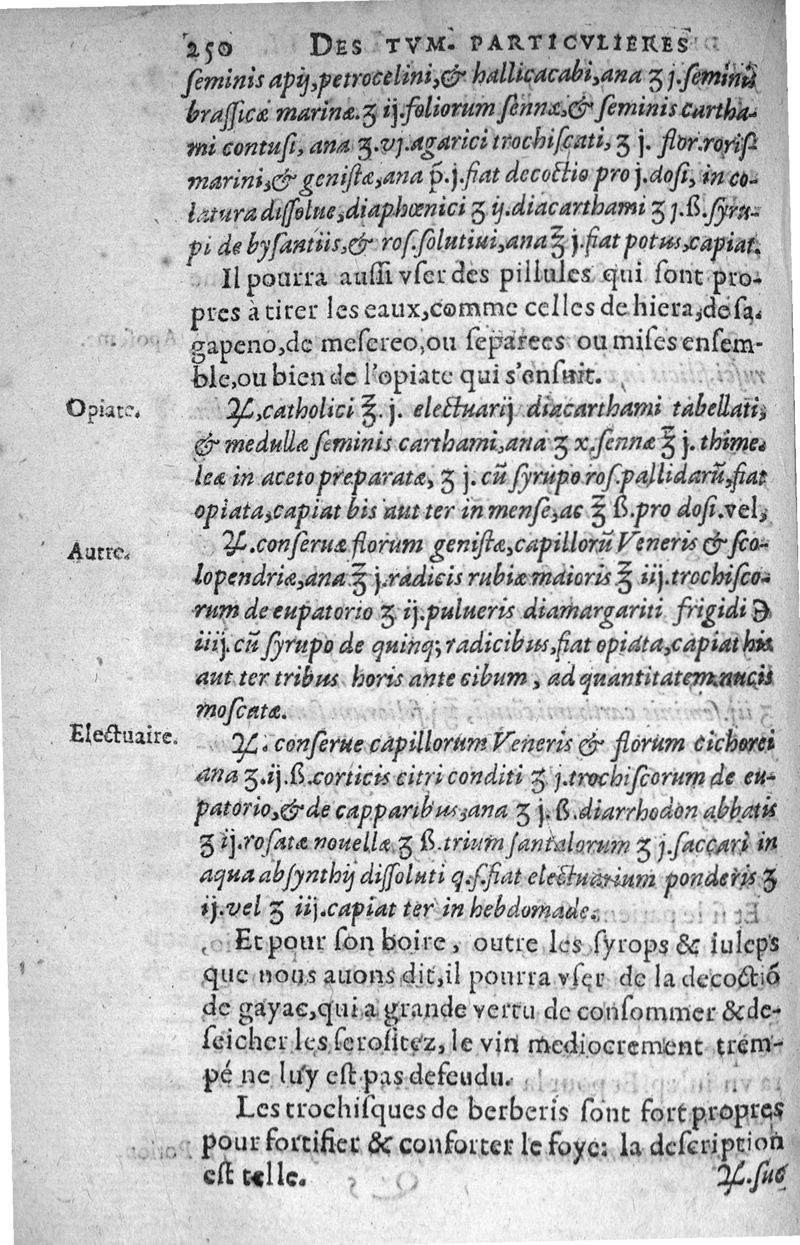 250 DES TVM. PARTICVLIERES
seminis apij, petrocelini, & hallicacabi, ana ʒ j. seminis
brassicæ marinæ. ʒ ij. foliorum sennæ, & seminis cartha-
mi contusi, ana ʒ. vj. agarici trochiscati, ʒ j. flor. roris
marini, & genistæ, ana p̃. j. fiat decoctio pro j. dosi, in co-
latura dissolue, diaphœnici ʒ ij. diacarthami ʒ j. ß. syru-
pi de bysantiis, & ros. solutiui, ana ℥ j. fiat potus, capiat.
Il pourra aussi vser des pillules qui sont pro-
pres à tirer les eaux, comme celles de hiera, de sa.
gapeno, de mesereo, ou separees ou mises ensem-
ble, ou bien de l'opiate qui s'ensuit.
Opiate.
℞, catholici ℥. j. electuarij diacarthami tabellati,
& medullæ seminis carthami, ana ʒ x. sennæ ℥ j. thime.
leæ in aceto preparatæ, ʒ j. cũ syrupo ros. pallidarũ, fiat
opiata, capiat bis aut ter in mense, ac ℥ ß. pro dosi. vel,
Autre.
℞. conseruæ florum genistæ, capillorũ Veneris & sco-
lopendriæ, ana ℥ j. radicis rubiæ maioris ℥ iij. trochisco-
rum de eupatorio ʒ ij. pulueris diamargariti frigidi ℈
iiij. cũ syrupo de quinq; radicibus, fiat opiata, capiat his
aut ter tribus horis ante cibum, ad quantitatem nucis
moscatæ.
Electuaire.
℞. conserue capillorum Veneris & florum cichorei
ana ʒ. ij. ß. corticis citri conditi ʒ j. trochiscorum de eu-
patorio, & de capparibus, ana ʒ j. ß. diarrhodon abbatis
ʒ ij. rosatæ nouellæ ʒ ß. trium santalorum ʒ j. saccari in
aqua absynthij dissoluti q. s. fiat electuarium ponderis ʒ
ij. vel ʒ iij. capiat ter in hebdomade.
Et pour son boire, outre les syrops & iuleps
que nous auons dit, il pourra vser de la decoctiõ
de gayac, qui a grande vertu de consommer & de-
seicher les serositez, le vin mediocrement trem-
pé ne luy est pas defendu.
Les trochisques de berberis sont fort propres
pour fortifier & conforter le foye: la description
est telle.
℞. suc